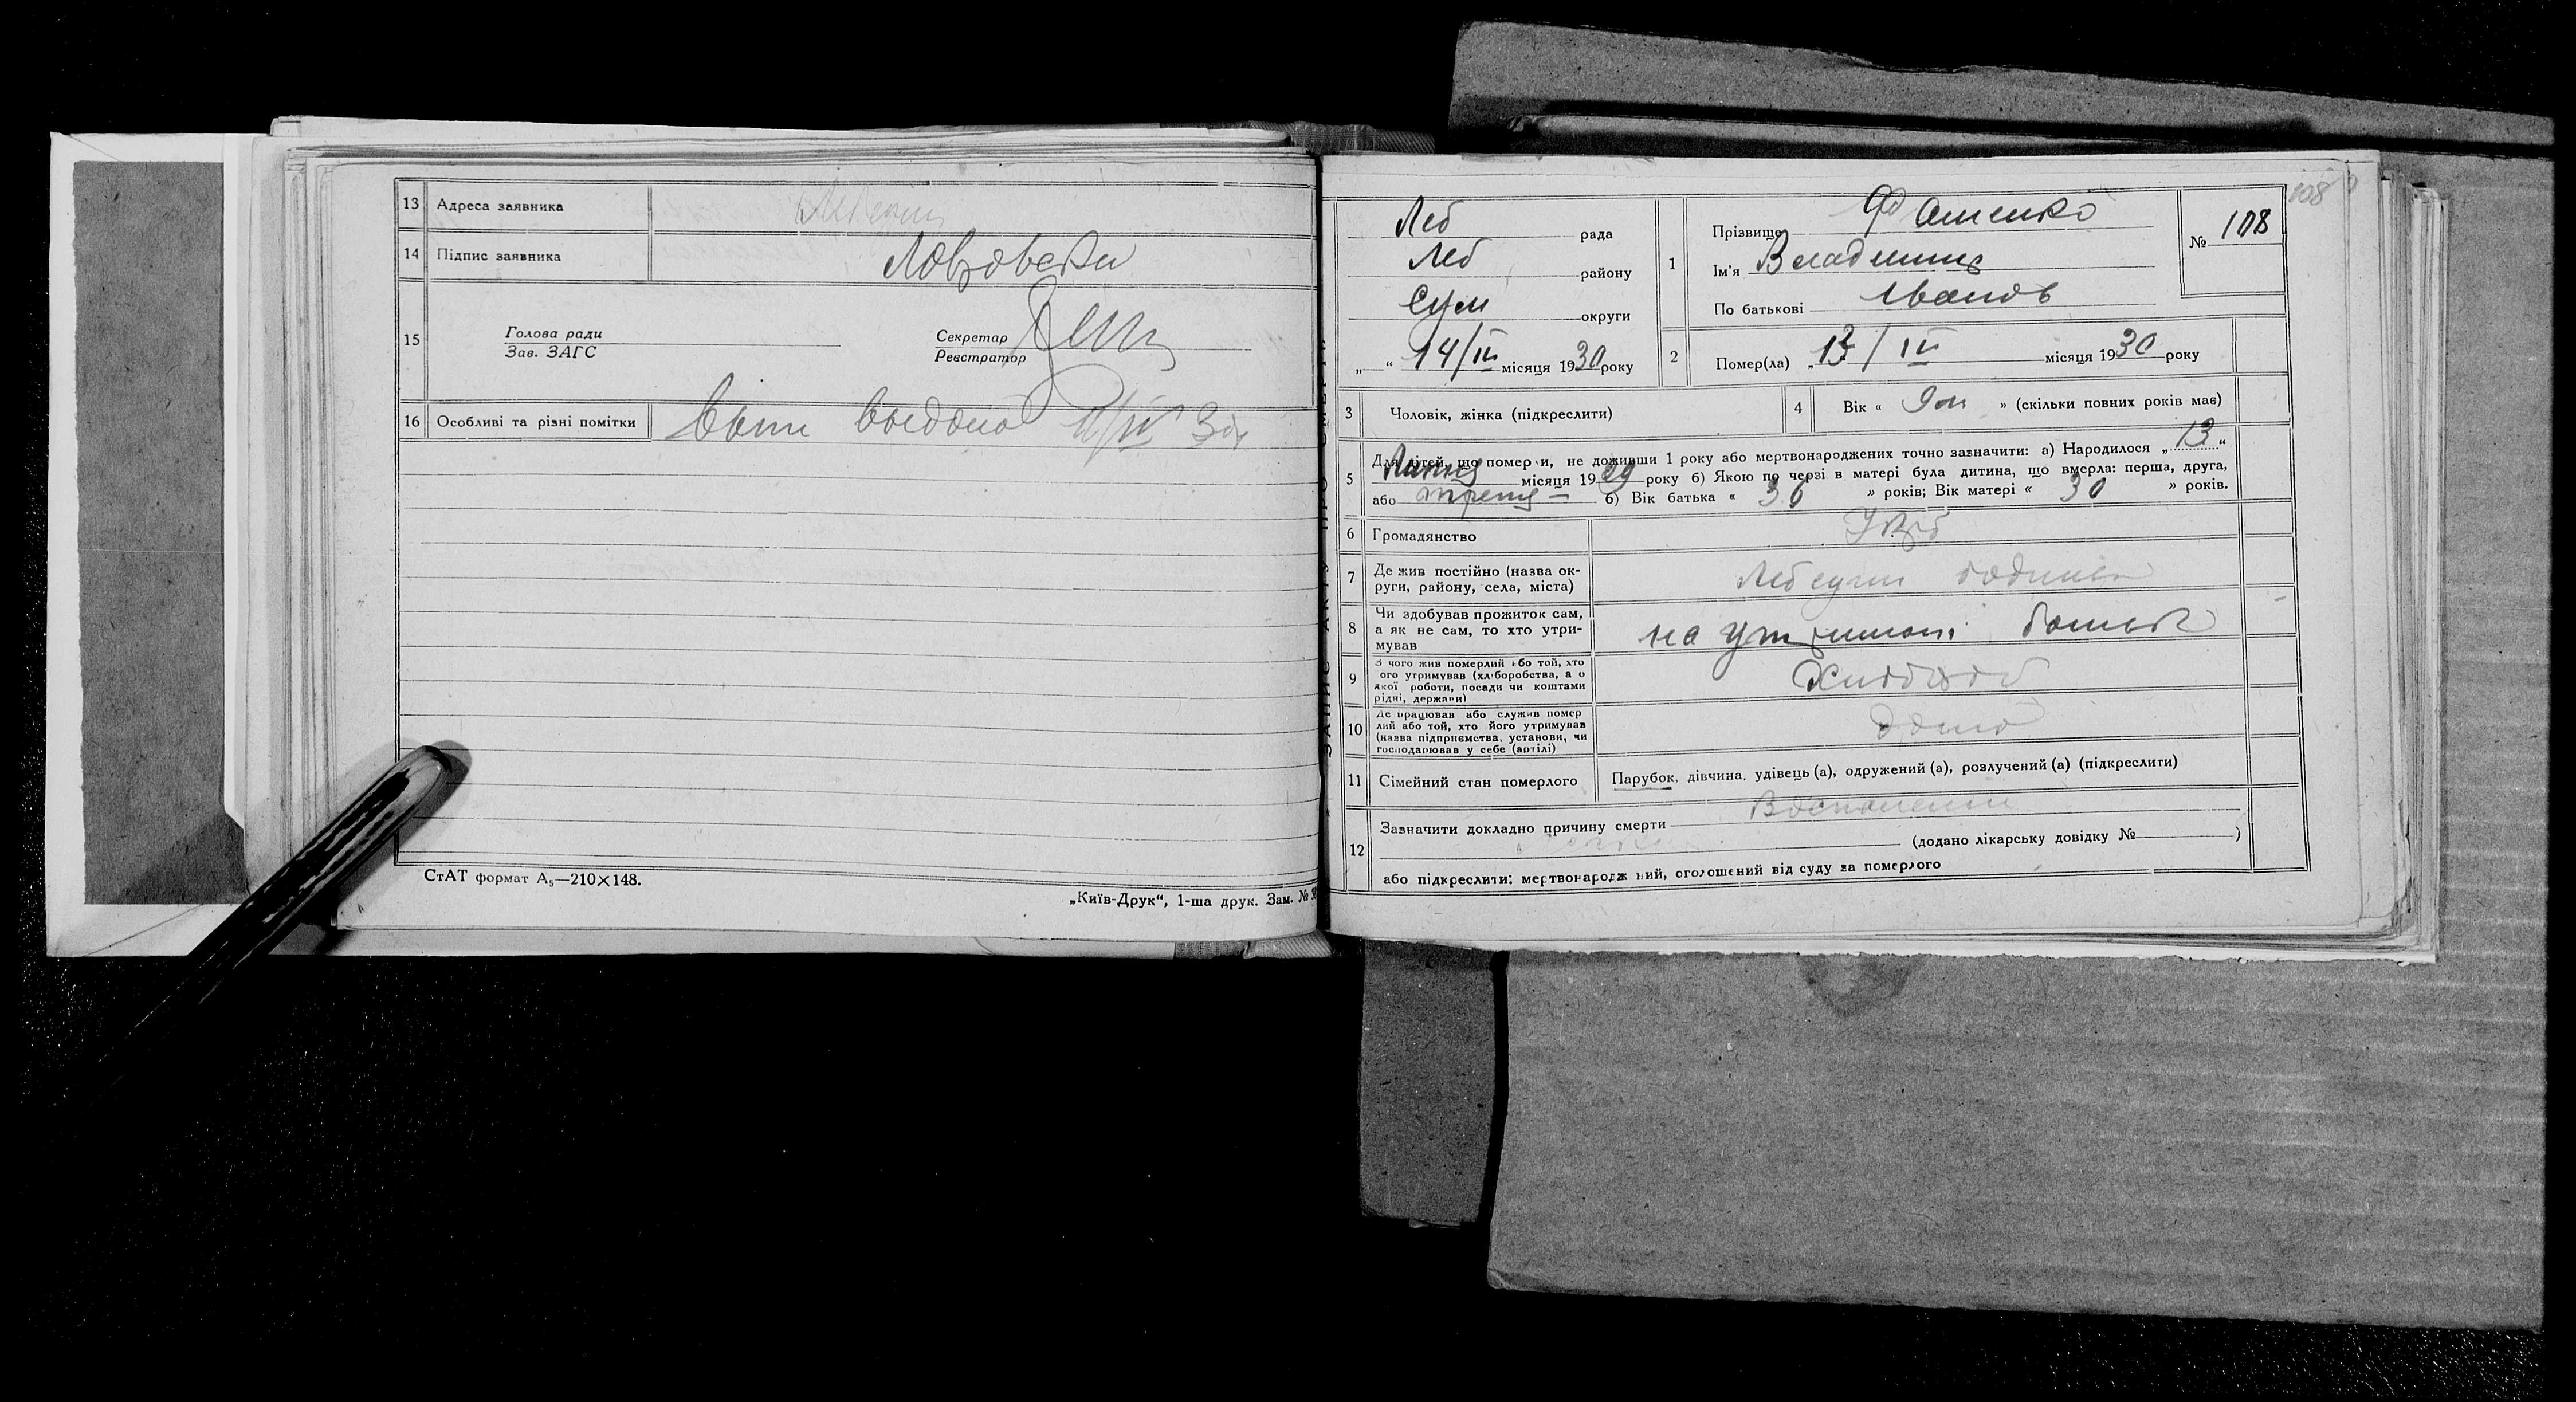 13 Адреса заявника Лебедин
14 Підпис заявника
15 Голова ради
Зав. ЗАГС
Секретар
Реєстратор
16 Особливі та різні помітки
СтАТ формат А₅—210×148.
„Київ-Друк“, 1-ша друк. Зам. №
108
Леб рада
Леб району
Сум округи
„ “ 14/III місяця 1930 року
1 Прізвище
Ім'я Владимир
По батькові Иванов
№ 108
2 Помер(ла) „13/III місяця 1930 року
3 Чоловік, жінка (підкреслити)
4 Вік « 9 м » (скільки повних років має)
5 Для дітей, що померли, не доживши 1 року або мертвонароджених точно зазначити: а) Народилося „13“
Липня місяця 1929 року б) Якою по черзі в матері була дитина, що вмерла: перша, друга,
або третя — б) Вік батька « 30 » років; Вік матері « 30 » років.
6 Громадянство УСРР
7 Де жив постійно (назва ок-
руги, району, села, міста) Лебедин
8 Чи здобував прожиток сам,
а як не сам, то хто утри-
мував на утриманні батька
9 З чого жив померлий або той, хто
ого утримував (хліборобства, а о
якої роботи, посади чи коштами
рідні, держави) Хлібороб
10 Де працював або служив помер
лий або той, хто його утримував
(назва підприємства, установи, чи
господарював у себе (артілі) дома
11 Сімейний стан померлого Парубок, дівчина, удівець (а), одружений (а), розлучений (а) (підкреслити)
12 Зазначити докладно причину смерти
(додано лікарську довідку № )
або підкреслити: мертвонародж ний, оголошений від суду за померлого